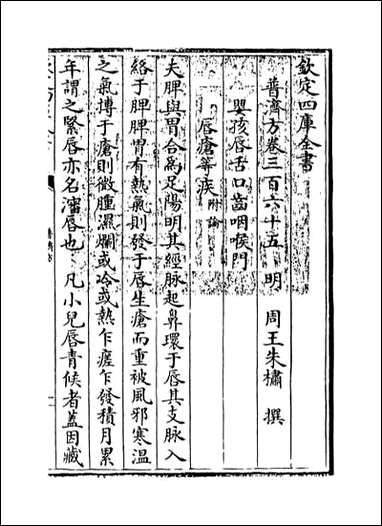 欽定四庫全書
普濟方卷三百六十五　明　周王朱橚　撰
嬰孩唇舌口齒咽喉門
唇瘡等疾附論
夫脾與胃合為足陽明其經脉起鼻環于唇其支脉入
絡于脾脾胃有熱氣則發于唇生瘡而重被風邪寒温
之氣搏于瘡則微腫濕爛或冷或熱乍瘥乍發積月累
年謂之緊唇亦名瀋唇也　凡小兒唇青候者葢因臓